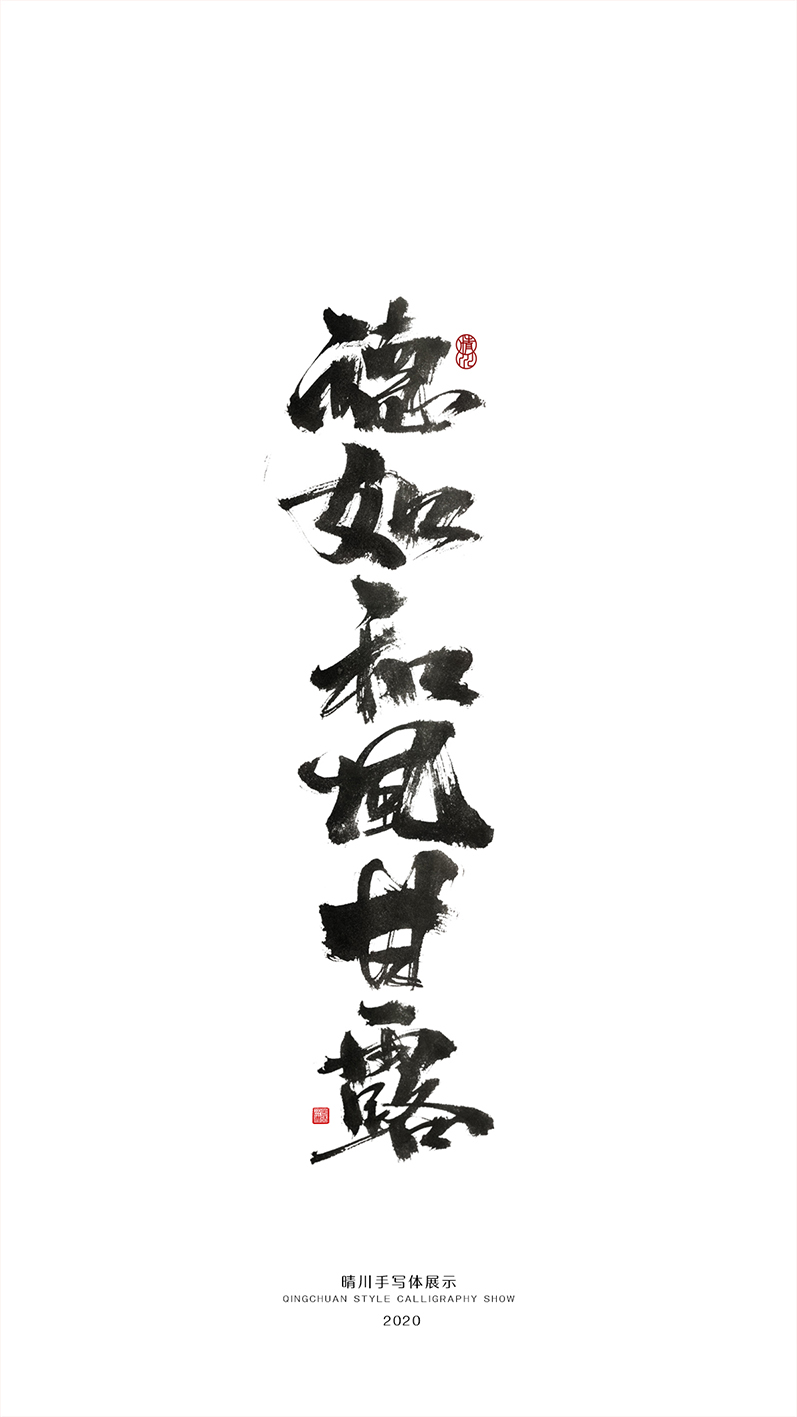 德如和风甘露
晴川
晴川手写体展示
QINGCHUAN STYLE CALLIGRAPHY SHOW
2020